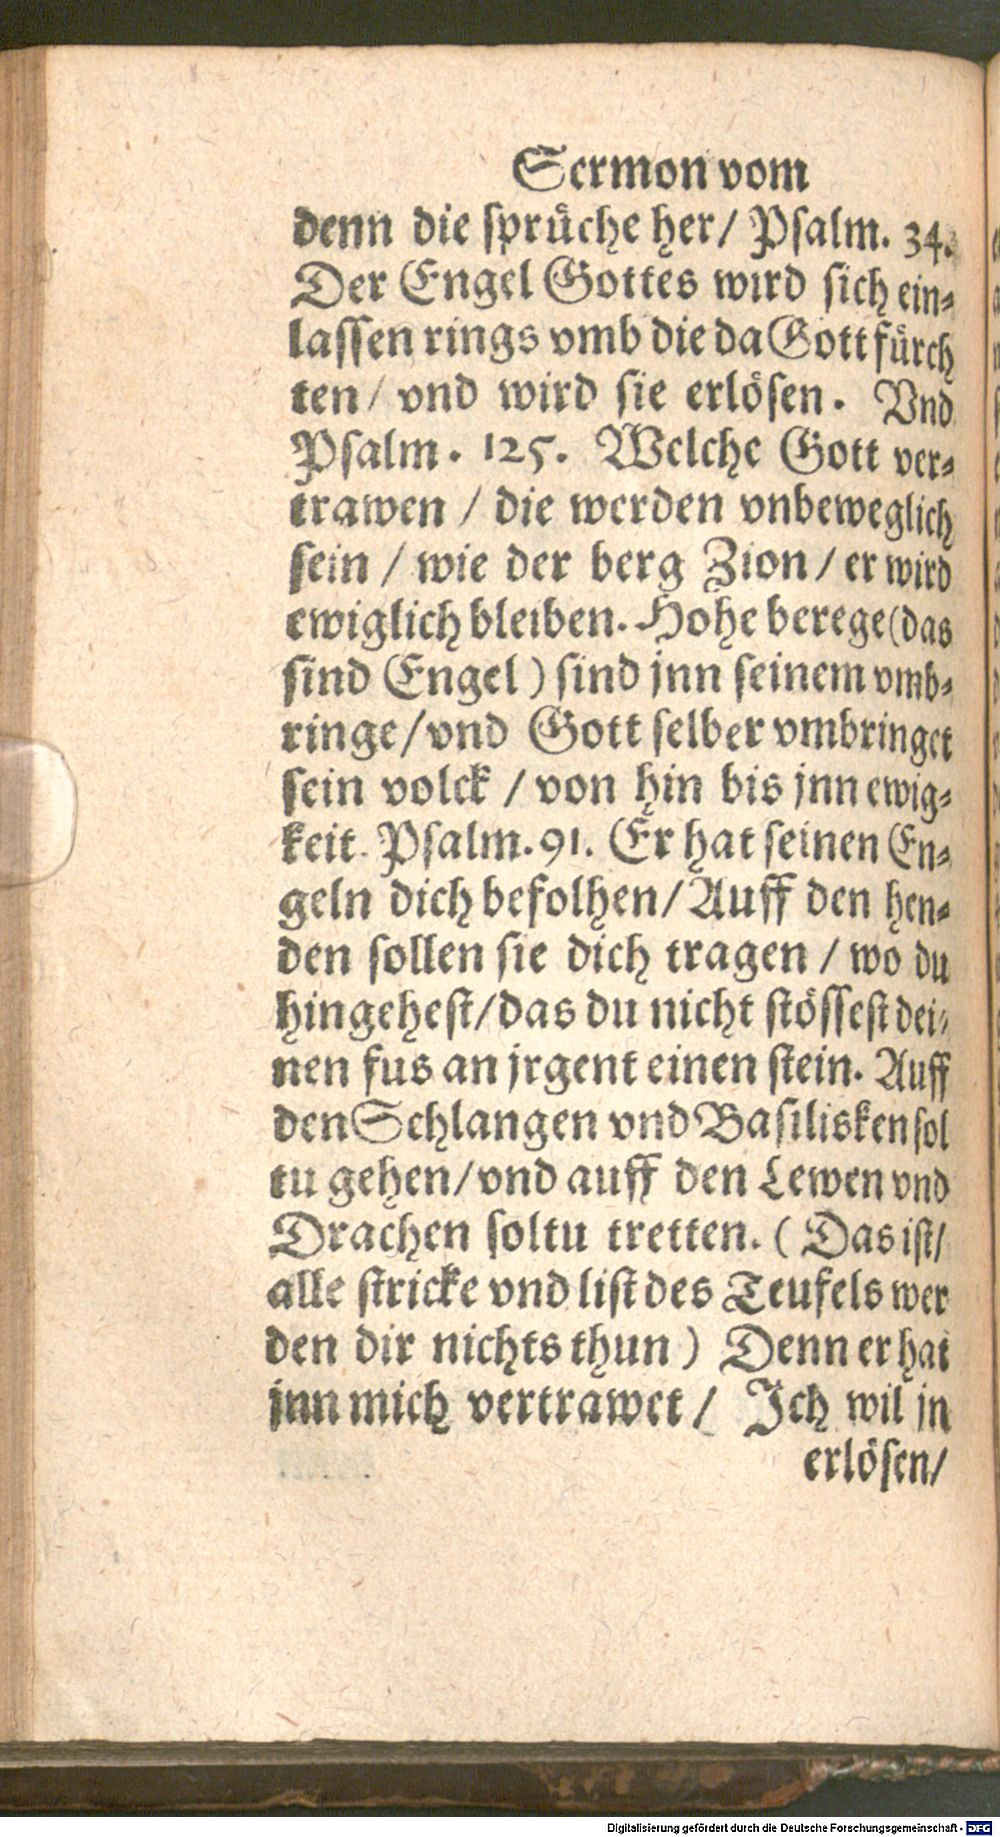 Sermon vom
denn die sprüche her/ Psalm. 34.
Der Engel Gottes wird sich ein⸗
lassen rings vmb die da Gott fürch
ten/ vnd wird sie erlösen. Vnd
Psalm. 125. Welche Gott ver⸗
trawen / die werden vnbeweglich
sein / wie der berg Zion / er wird
ewiglich bleiben. Hohe berege (das
sind Engel) sind jnn seinem vmb⸗
ringe/ vnd Gott selber vmbringet
sein volck / von hin bis jnn ewig⸗
keit. Psalm. 91. Er hat seinen En⸗
geln dich befolhen/ Auff den hen⸗
den sollen sie dich tragen / wo du
hingehest/ das du nicht stössest dei⸗
nen fus an jrgent einen stein. Auff
den Schlangen vnd Basilisken sol
tu gehen/ vnd auff den Lewen vnd
Drachen soltu tretten. ( Das ist/
alle stricke vnd list des Teufels wer
den dir nichts thun ) Denn er hat
jnn mich vertrawet / Ich wil jn
erlösen/
Digitalisierung gefördert durch die Deutsche Forschungsgemeinschaft - DFG